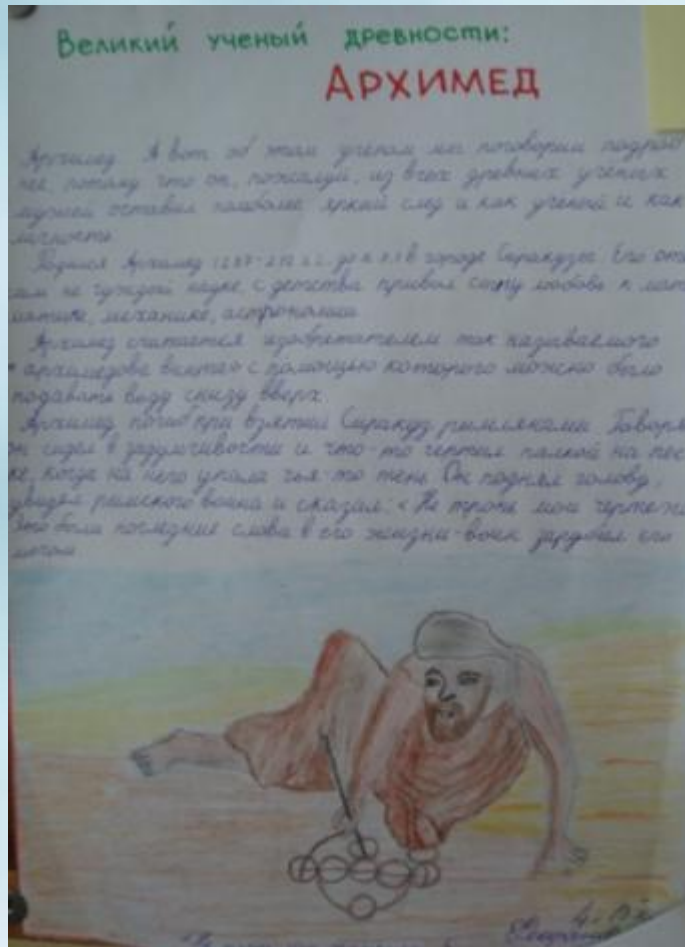 Великий ученый древности:
АРХИМЕД
Архимед. А вот об этом ученом мы поговорим подроб
нее, потому что он, пожалуй, из всех древних ученых
мужей оставил наиболее яркий след и как ученый и как
личность.
Родился Архимед в городе Сиракузы. Его оте
сам не чуждый науке, с детства привил сыну любовь к мат
ематике, механике, астрономии.
Архимед считается изобретателем так называемого
архимедова винта с помощью которого можно было
подавать воду снизу вверх.
Архимед погиб при взятии Сиракуз римлянами. Говоря
он сидел в задумчивости и что-то чертил палкой на пес
ке, когда на него упала чья-то тень. Он поднял голову,
увидел римского воина и сказал: «Не тронь мои чертежи
Это были последние слова в его жизни-воин зарубил его
мечом.